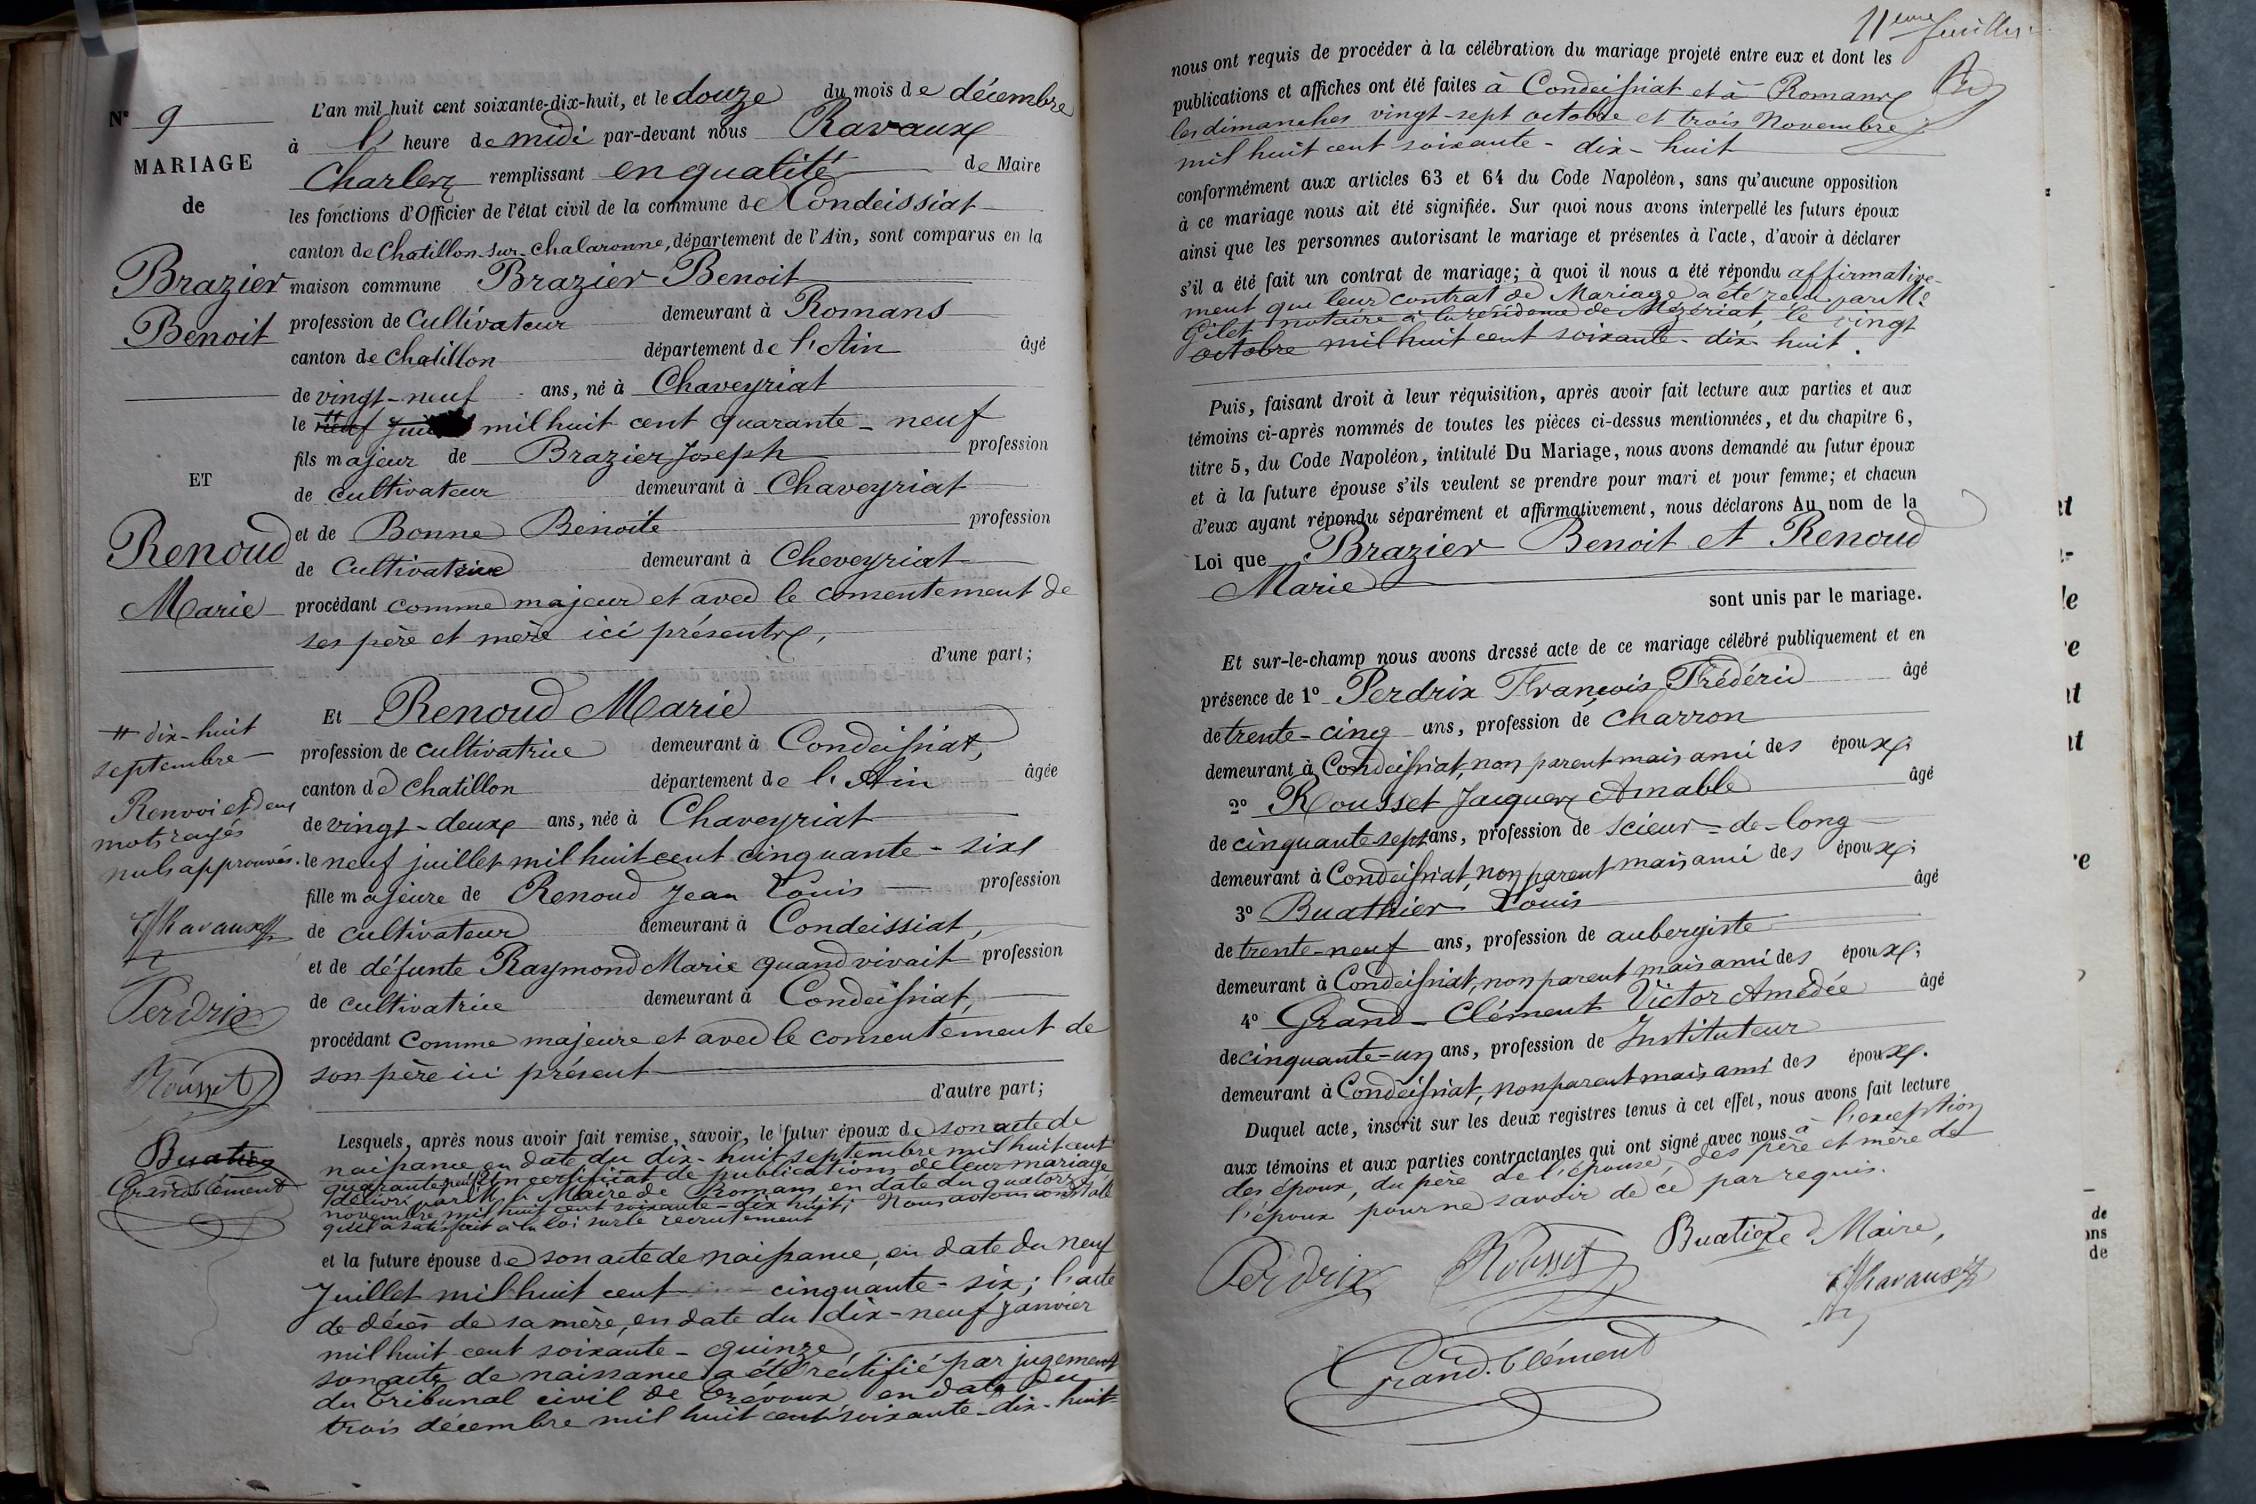 N° 9
MARIAGE
de
Brazier
Benoit
ET
Renoud
Marie
# dix-huit
septembre
Renvoi et deux
mots rayés
nuls approuvés.
Ch Ravaux
Perdrix
Rousset
Buatier
Grand-Clément
L'an mil huit cent soixante-dix-huit, et le douze du mois de décembre
à l' heure de midi par-devant nous Ravaux
Charles remplissant en qualité de Maire
les fonctions d'Officier de l'état civil de la commune de Condeissiat
canton de Chatillon-sur-Chalaronne, département de l'Ain, sont comparus en la
maison commune Brazier Benoit
profession de Cultivateur demeurant à Romans
canton de Chatillon département de l'Ain âgé
de vingt-neuf ans, né à Chaveyriat
le # neuf mil huit cent quarante-neuf
fils majeur de Brazier Joseph profession
de cultivateur demeurant à Chaveyriat
et de Bonne Benoite profession
de Cultivatrice demeurant à Cheveyriat
procédant comme majeur et avec le consentement de
ses père et mère ici présents,
d'une part;
Et Renoud Marie
profession de cultivatrice demeurant à Condeissiat,
canton de Chatillon département de l'Ain âgée
de vingt-deux ans, née à Chaveyriat
le neuf juillet mil huit cent cinquante-six
fille majeure de Renoud Jean Louis profession
de cultivateur demeurant à Condeissiat,
et de défunte Raymond Marie quand vivait profession
de cultivatrice demeurant à Condeissiat,
procédant Comme majeure et avec le consentement de
son père ici présent
d'autre part;
Lesquels, après nous avoir fait remise, savoir, le futur époux de son acte de
naissance en date du dix-huit septembre mil huit cent
quarante neuf Un certificat de publications de leur mariage
délivré par M. le Maire de Romans en date du quatorze
novembre mil huit cent soixante-dix huit; Nous avons constaté
qu'il a satisfait à la loi sur le recrutement
et la future épouse de son acte de naissance, en date du neuf
Juillet mil huit cent cinquante-six; l'acte
de décès de sa mère, en date du dix-neuf janvier
mil huit cent soixante-quinze,
son acte de naissance a été rectifié par jugement
du Tribunal civil de Trévoux en date du
trois décembre mil huit cent soixante-dix-huit
11eme feuillet
nous ont requis de procéder à la célébration du mariage projeté entre eux et dont les
publications et affiches ont été faites à Condeissiat et à Romans
les dimanches vingt-sept octobre et trois Novembre
mil huit cent soixante-dix-huit
conformément aux articles 63 et 64 du Code Napoléon, sans qu'aucune opposition
à ce mariage nous ait été signifiée. Sur quoi nous avons interpellé les futurs époux
ainsi que les personnes autorisant le mariage et présentes à l'acte, d'avoir à déclarer
s'il a été fait un contrat de mariage; à quoi il nous a été répondu affirmative-
ment que leur contrat de Mariage a été reçu par Me
Gilet notaire à la résidence de Mézériat, le vingt
octobre mil huit cent soixante-dix-huit.
Puis, faisant droit à leur réquisition, après avoir fait lecture aux parties et aux
témoins ci-après nommés de toutes les pièces ci-dessus mentionnées, et du chapitre 6,
titre 5, du Code Napoléon, intitulé Du Mariage, nous avons demandé au futur époux
et à la future épouse s'ils veulent se prendre pour mari et pour femme; et chacun
d'eux ayant répondu séparément et affirmativement, nous déclarons Au nom de la
Loi que Brazier Benoit et Renoud
Marie
sont unis par le mariage.
Et sur-le-champ nous avons dressé acte de ce mariage célébré publiquement et en
présence de 1° Perdrix François Frédéric âgé
de trente-cinq ans, profession de charron
demeurant à Condeissiat, non parent mais ami des époux;
2° Rousset Jacques Amable âgé
de cinquante-sept ans, profession de scieur-de-long
demeurant à Condeissiat, non parent mais ami des époux;
3° Buathier Louis âgé
de trente-neuf ans, profession de aubergiste
demeurant à Condeissiat, non parent mais ami des époux;
4° Grand-Clément Victor Amédée âgé
de cinquante-un ans, profession de Instituteur
demeurant à Condeissiat, non parent mais ami des époux.
Duquel acte, inscrit sur les deux registres tenus à cet effet, nous avons fait lecture
aux témoins et aux parties contractantes qui ont signé avec nous à l'exception
des époux, du père de l'épouse, des père et mère de
l'époux pour ne savoir de ce par requis.
Perdrix Rousset Buatier Le Maire,
Ch Ravaux
Grand-Clément